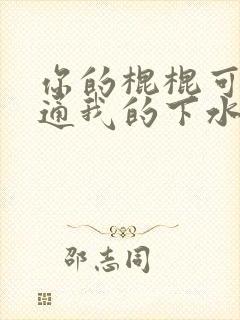 你的棍棍可
通我的下水
邵志同